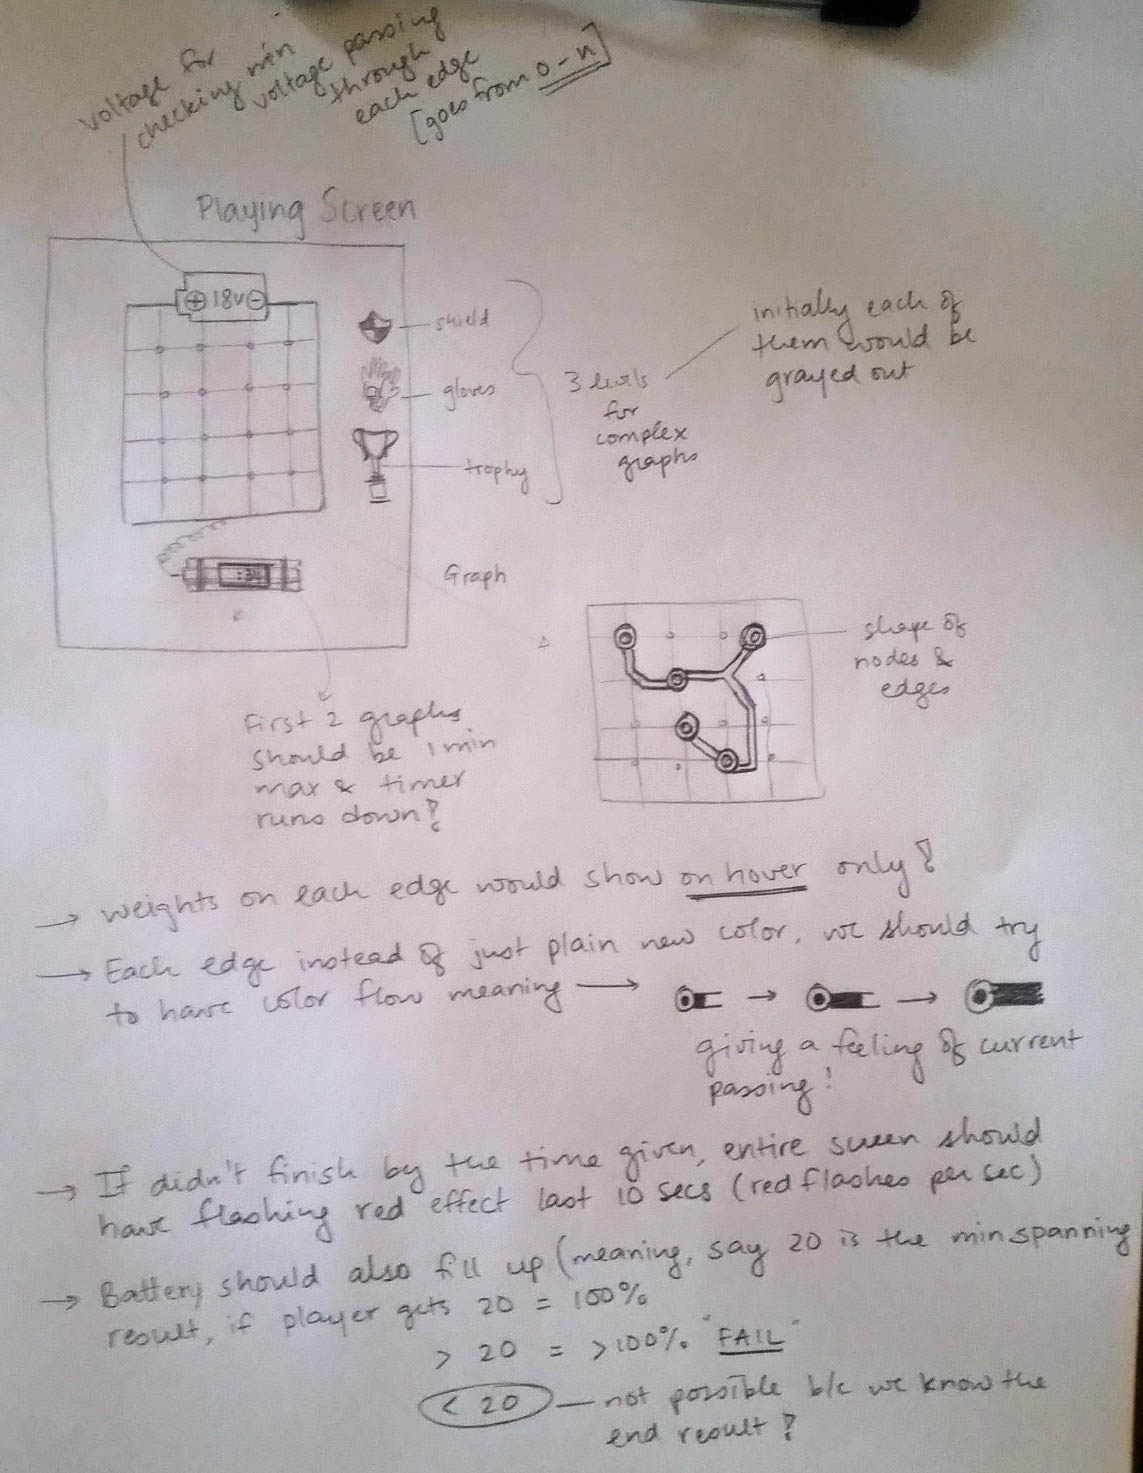 voltage for
checking min
voltage passing
through
each edge
[goes from 0 - n]
Playing Screen
+ 18v -
shield
gloves
trophy
3 levels
for
complex
graphs
initially each of
them would be
grayed out
Graph
shape of
nodes &
edges
first 2 graphs
should be 1 min
max & timer
runs down?
→ weights on each edge would show on hover only?
→ Each edge instead of just plain new color, we should try
to have color flow meaning →
→ →
giving a feeling of current
passing!
→ If didn't finish by the time given, entire screen should
have flashing red effect last 10 secs (red flashes per sec)
→ Battery should also fill up (meaning, say 20 is the min spanning
result, if player gets 20 = 100%
> 20 = >100%. "FAIL"
< 20 — not possible b/c we know the
end result?